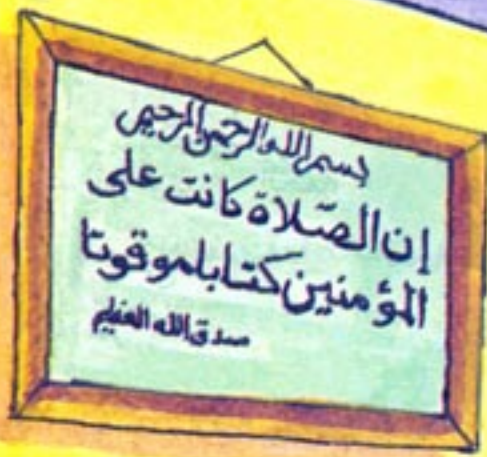 بسم الله الرحمن الرحيم
إن الصّلاة كانت على
المؤمنين كتابا موقوتا
صدق الله العظيم